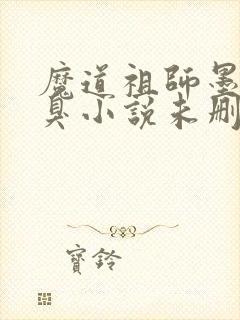 魔道祖師墨
臭小說未刪
寶鈴